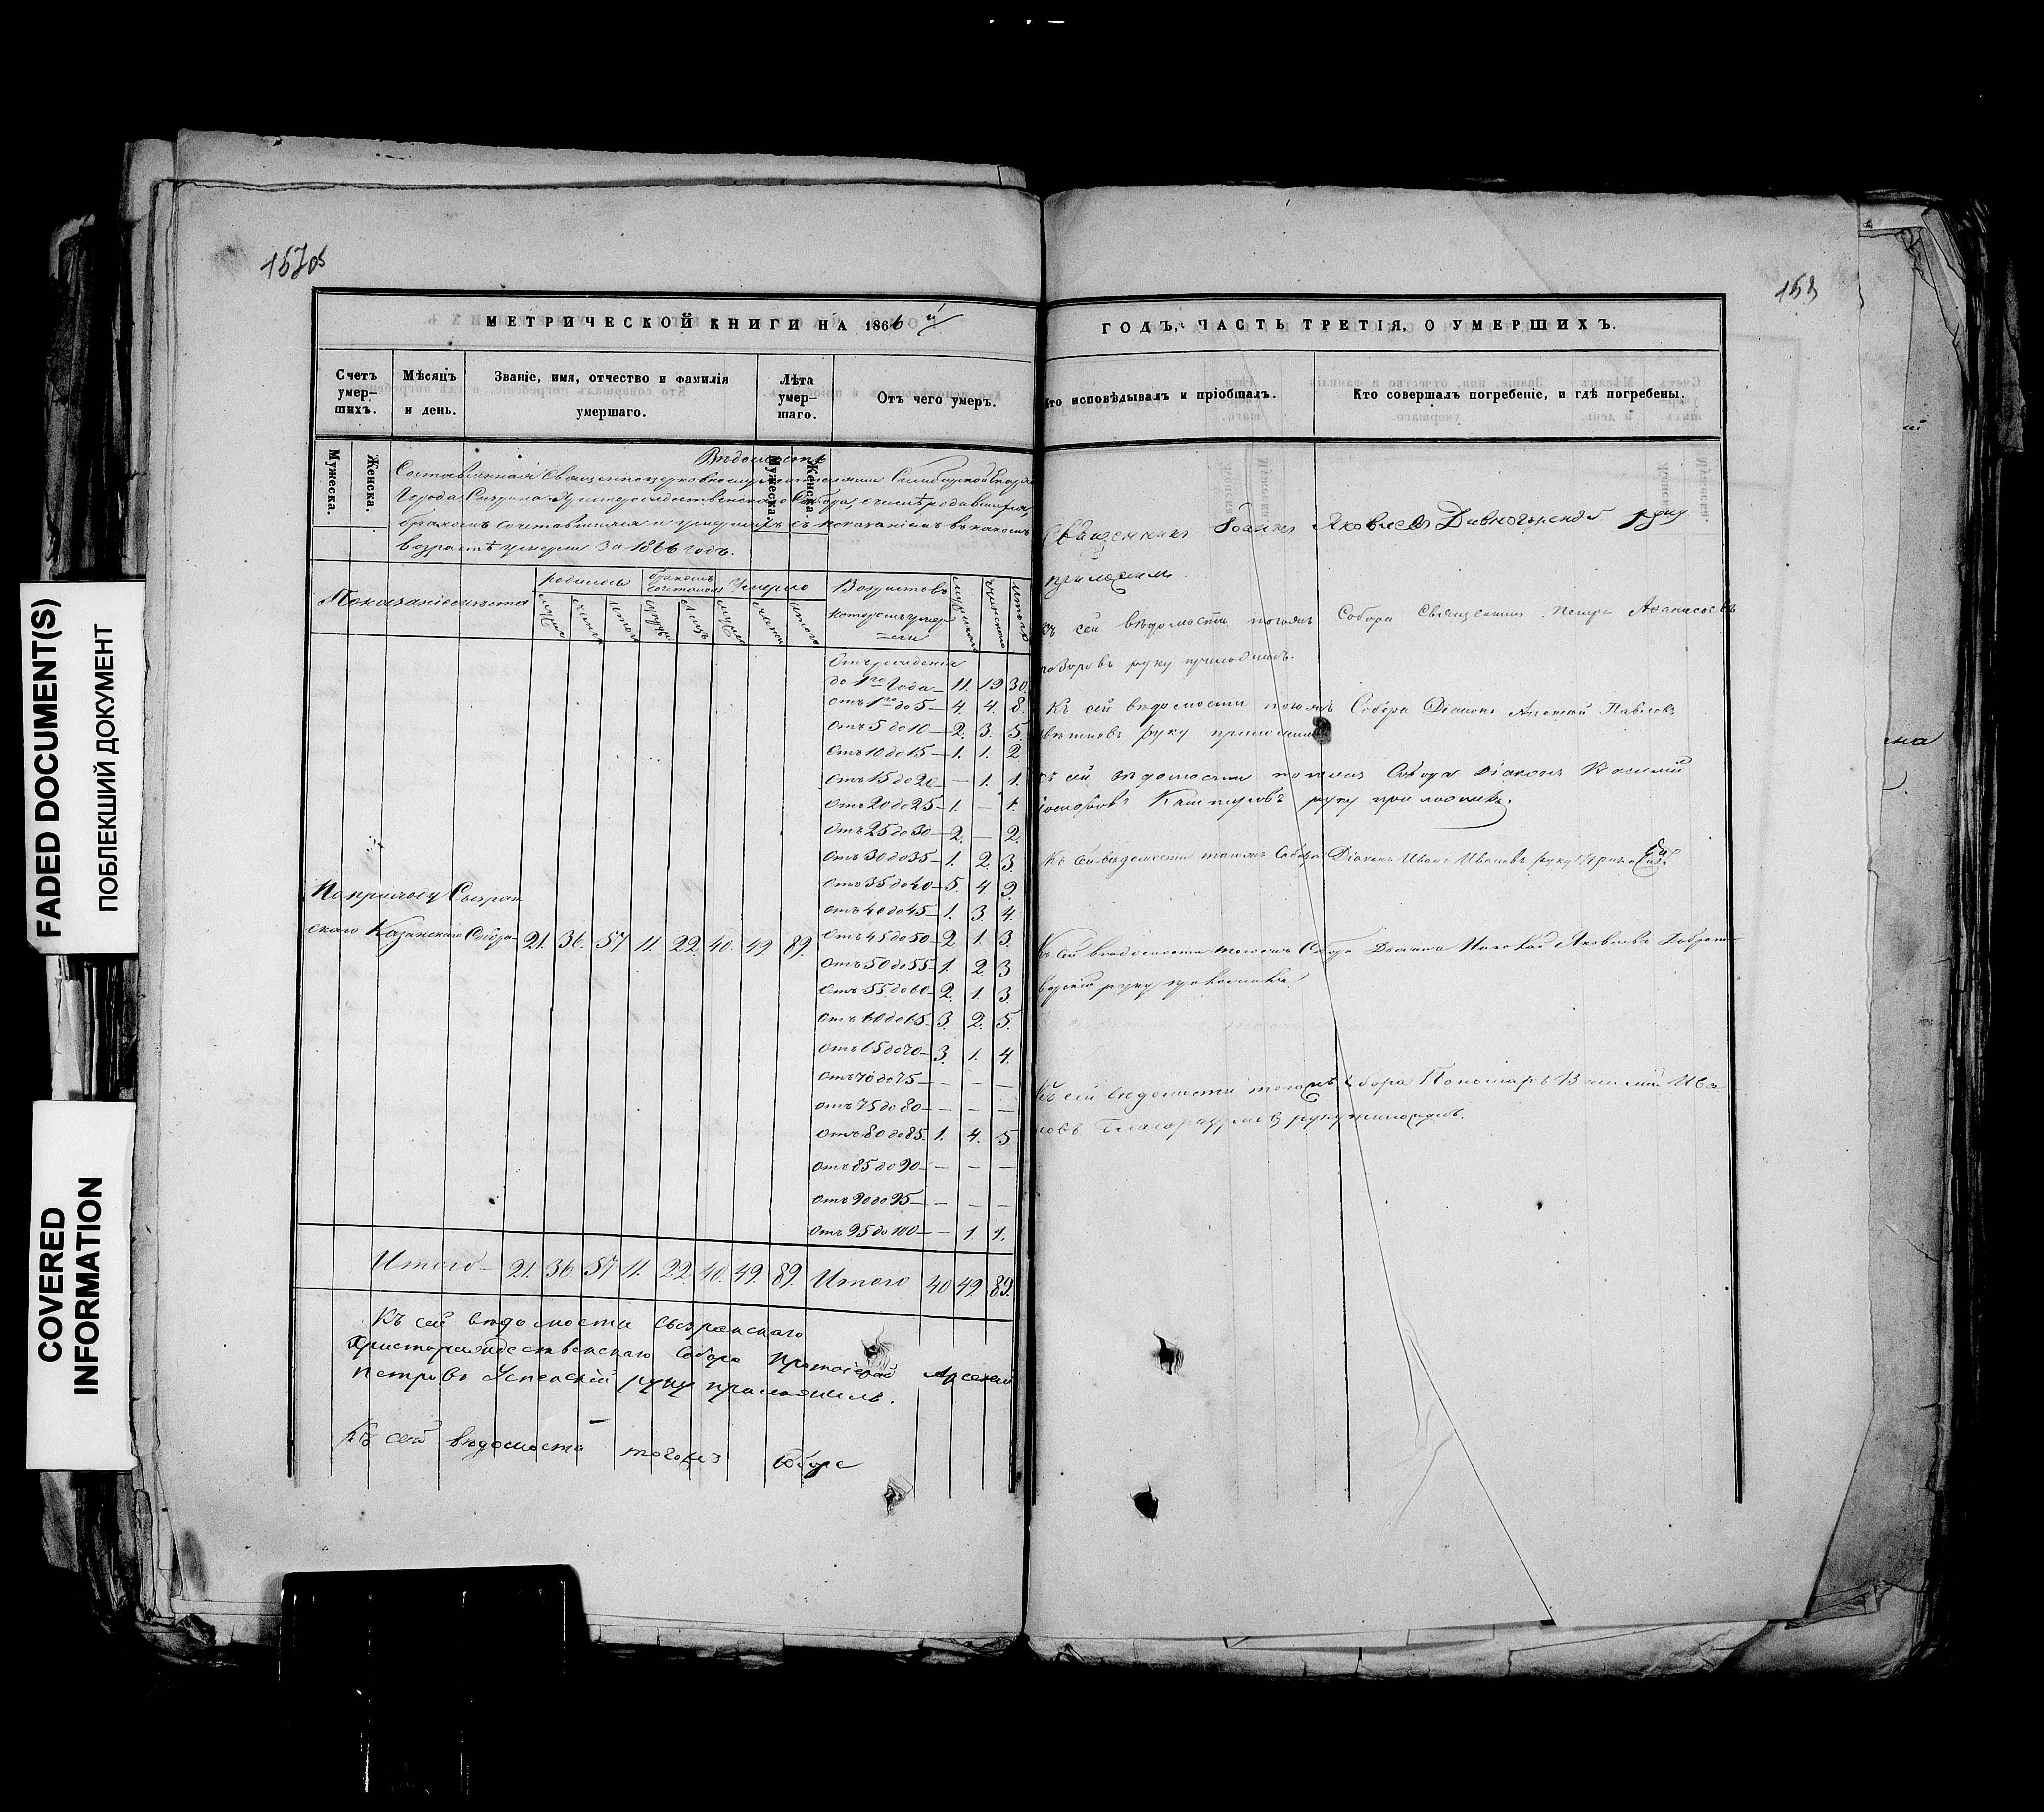 FADED DOCUMENT(S)
ПОБЛЕКШИЙ ДОКУМЕНТ
COVERED
INFORMATION
157об
158
МЕТРИЧЕСКОЙ КНИГИ НА 1866 й
Счетъ умер-шихъ.
Мѣсяцъ и день.
Званіе, имя, отчество и фамилія умершаго.
Лѣта умер-шаго.
Отъ чего умеръ.
Мужеска.
Женска.
Мужеска.
Женска.
Вѣдомость
Составленная Священноцерковнослужителями Симбирской Епар
Города Сызрана Христорождественскаго Собора, о числѣ родившихся,
бракомъ сочетавшихся и умершихъ съ показаніемъ въ какомъ
возрастѣ умерли за 1866 годъ.
Показаніе мѣста
родилось
бракомъ сочеталось
Умерло
Возрастовъ которыхъ умер=ли
мужска
женска
итого
Отъ рожденія
до 1го Года — 11. 19 30.
отъ 1го до 5 — 4. 4. 8.
Отъ 5 до 10 — 2. 3. 5.
Отъ 10 до 15 — 1. 1. 2
Отъ 15 до 20 — — 1. 1.
Отъ 20 до 25 — 1. — 1.
Отъ 25 до 30 — 2. — 2.
Отъ 30 до 35 — 1. 2. 3
Отъ 35 до 40 — 5. 4 9.
Отъ 40 до 45 — 1. 3. 4.
Отъ 45 до 50 — 2 1. 3.
Отъ 50 до 55 — 1. 2. 3
Отъ 55 до 60 — 2. 1. 3.
Отъ 60 до 65 — 3. 2. 5.
Отъ 65 до 70 — 3. 1. 4.
Отъ 70 до 75 — — — —
Отъ 75 до 80 — — — —
Отъ 80 до 85 1. 4. 5
Отъ 85 до 90 — — — —
Отъ 90 до 95 — — — —
Отъ 95 до 100 — — 1 1.
По приходу Сызран
скаго Казанскаго Собора — 21. 36. 57 11. 22. 40. 49. 89.
Итого — 21. 36. 57 11. 22. 40. 49. 89. Итого 40 49. 89.
Къ сей вѣдомости Сызранскаго
Христорождественскаго Собора Протоіерей Арсеній
Петровъ Успенскій руку приложилъ.
Къ сей вѣдомости тогожъ Собора
ГОДЪ, ЧАСТЬ ТРЕТІЯ, О УМЕРШИХЪ.
Кто исповѣдывалъ и пріобщалъ.
Кто совершалъ погребеніе, и гдѣ погребены.
Священникъ Іоаннъ Яковлевъ Дивногорскій руку
приложилъ.
Къ сей вѣдомости тогожъ Собора Священникъ Петръ Аѳанасьевъ
руку приложилъ.
Къ сей вѣдомости тогожъ Собора Діаконъ Алексѣй Павловъ
руку приложилъ
Къ сей вѣдомости тогожъ Собора Діаконъ Василій
руку приложилъ.
Къ сей вѣдомости тогожъ Собора Діаконъ Иванъ Ивановъ руку приложилъ
Къ сей вѣдомости тогожъ Собора Дьячекъ Николай Яковлевъ
руку приложилъ
Къ сей вѣдомости тогожъ Собора Пономарь Василій Ива
новъ Благоразумовъ руку приложилъ.